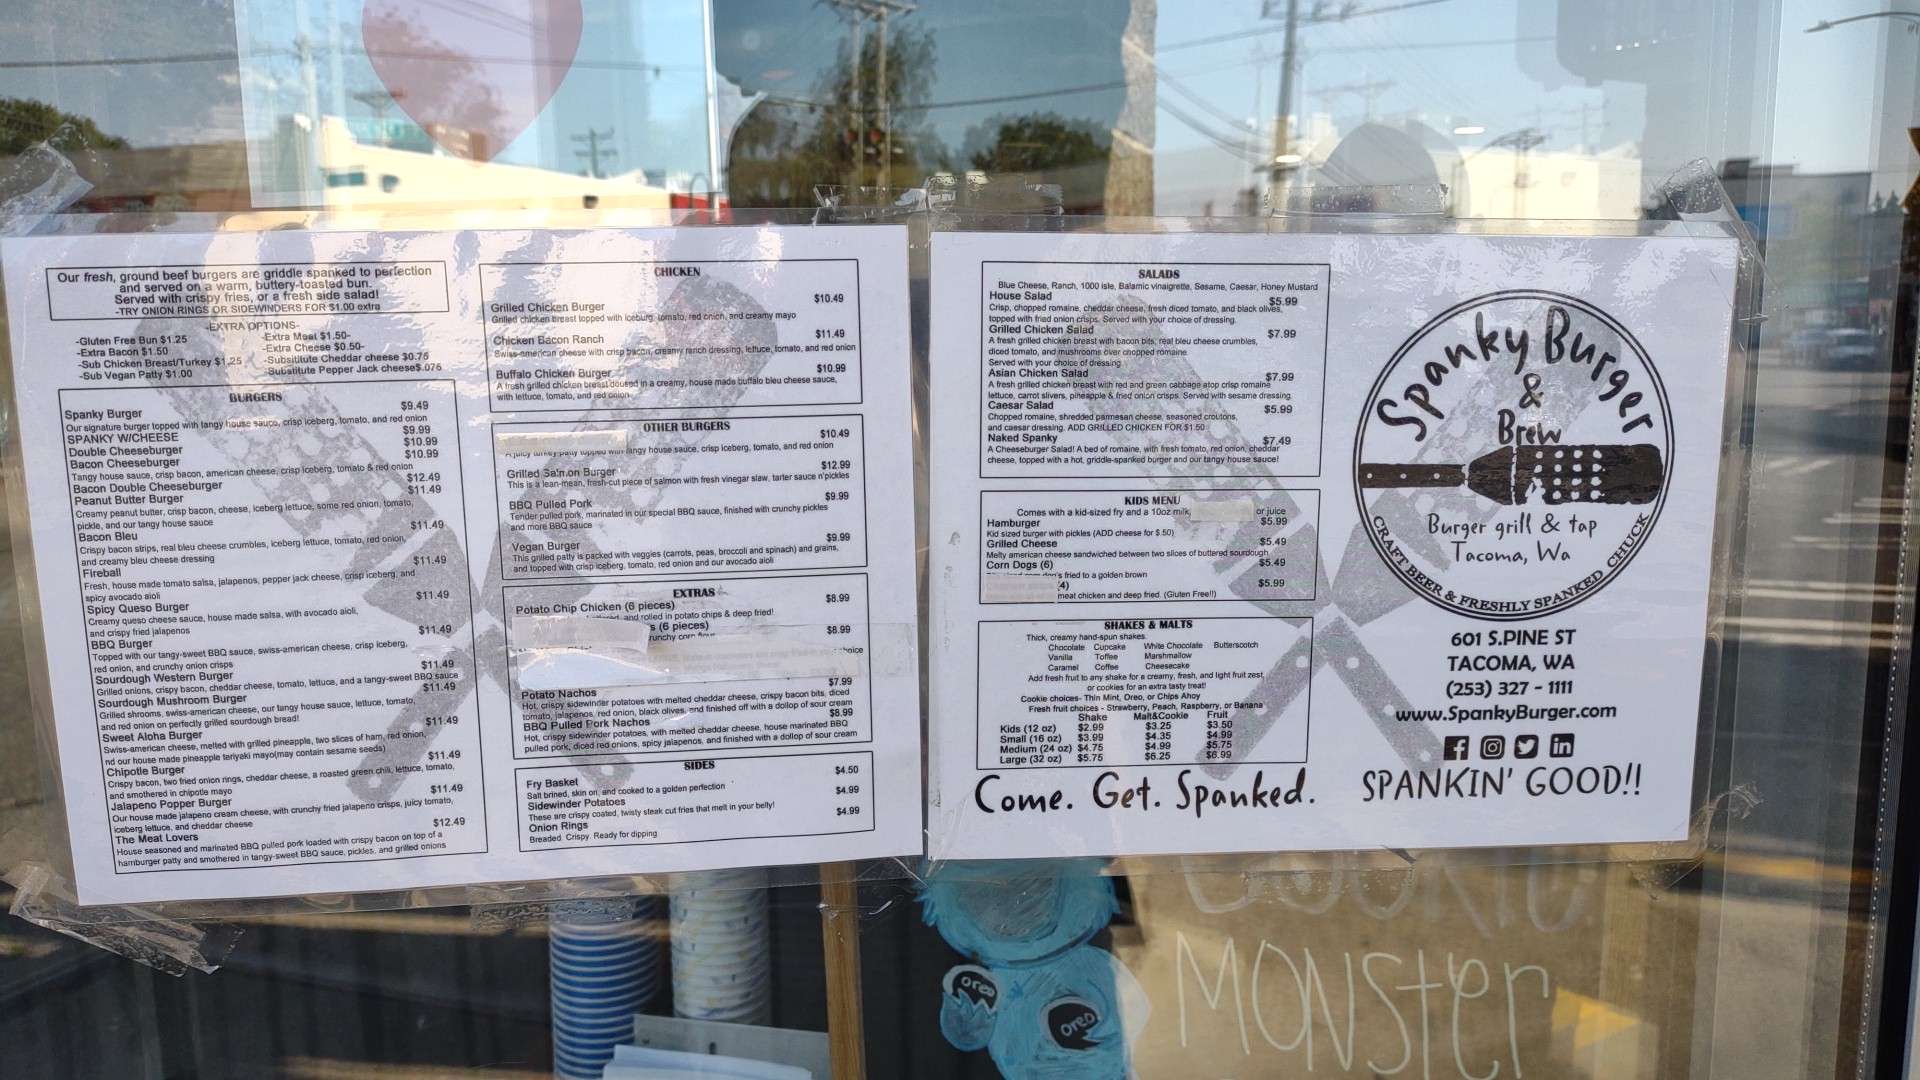 Our fresh, ground beef burgers are griddle spanked to perfection
and served on a warm, buttery-toasted bun.
Served with crispy fries, or a fresh side salad!
-TRY ONION RINGS OR SIDEWINDERS FOR $1.00 extra
-EXTRA OPTIONS-
-Gluten Free Bun $1.25
-Extra Bacon $1.50
-Sub Chicken Breast/Turkey $1.25
-Sub Vegan Patty $1.00
-Extra Meat $1.50-
-Extra Cheese $0.50-
-Subsititute Cheddar cheese $0.75
-Substitute Pepper Jack cheese$.075
BURGERS
Spanky Burger $9.49
Our signature burger topped with tangy house sauce, crisp iceberg, tomato, and red onion
SPANKY W/CHEESE $9.99
Double Cheeseburger $10.99
Bacon Cheeseburger $10.99
Tangy house sauce, crisp bacon, american cheese, crisp iceberg, tomato & red onion
Bacon Double Cheeseburger $12.49
Peanut Butter Burger $11.49
Creamy peanut butter, crisp bacon, cheese, iceberg lettuce, some red onion, tomato,
pickle, and our tangy house sauce
Bacon Bleu $11.49
Crispy bacon strips, real bleu cheese crumbles, iceberg lettuce, tomato, red onion,
and creamy bleu cheese dressing
Fireball $11.49
Fresh, house made tomato salsa, jalapenos, pepper jack cheese, crisp iceberg, and
spicy avocado aioli
Spicy Queso Burger $11.49
Creamy queso cheese sauce, house made salsa, with avocado aioli,
and crispy fried jalapenos
BBQ Burger $11.49
Topped with our tangy-sweet BBQ sauce, swiss-american cheese, crisp iceberg,
red onion, and crunchy onion crisps
Sourdough Western Burger $11.49
Grilled onions, crispy bacon, cheddar cheese, tomato, lettuce, and a tangy-sweet BBQ sauce
Sourdough Mushroom Burger $11.49
Grilled shrooms, swiss-american cheese, our tangy house sauce, lettuce, tomato,
and red onion on perfectly grilled sourdough bread!
Sweet Aloha Burger $11.49
Swiss-american cheese, melted with grilled pineapple, two slices of ham, red onion,
nd our house made pineapple teriyaki mayo(may contain sesame seeds)
Chipotle Burger $11.49
Crispy bacon, two fried onion rings, cheddar cheese, a roasted green chili, lettuce, tomato,
and smothered in chipotle mayo
Jalapeno Popper Burger $11.49
Our house made jalapeno cream cheese, with crunchy fried jalapeno crisps, juicy tomato,
iceberg lettuce, and cheddar cheese
The Meat Lovers $12.49
House seasoned and marinated BBQ pulled pork loaded with crispy bacon on top of a
hamburger patty and smothered in tangy-sweet BBQ sauce, pickles, and grilled onions
CHICKEN
Grilled Chicken Burger $10.49
Grilled chicken breast topped with iceburg, tomato, red onion, and creamy mayo
Chicken Bacon Ranch $11.49
Swiss-american cheese with crisp bacon, creamy ranch dressing, lettuce, tomato, and red onion
Buffalo Chicken Burger $10.99
A fresh grilled chicken breast doused in a creamy, house made buffalo bleu cheese sauce,
with lettuce, tomato, and red onion
OTHER BURGERS
$10.49
A juicy turkey patty topped with tangy house sauce, crisp iceberg, tomato, and red onion
Grilled Salmon Burger $12.99
This is a lean-mean, fresh-cut piece of salmon with fresh vinegar slaw, tarter sauce n'pickles
BBQ Pulled Pork $9.99
Tender pulled pork, marinated in our special BBQ sauce, finished with crunchy pickles
and more BBQ sauce
Vegan Burger $9.99
This grilled patty is packed with veggies (carrots, peas, broccoli and spinach) and grains,
and topped with crisp iceberg, tomato, red onion and our avocado aioli
EXTRAS
Potato Chip Chicken (6 pieces) $8.99
and rolled in potato chips & deep fried!
s (6 pieces) $8.99
crunchy corn
choice
Potato Nachos $7.99
Hot, crispy sidewinder potatoes with melted cheddar cheese, crispy bacon bits, diced
tomato, jalapenos, red onion, black olives, and finished off with a dollop of sour cream
BBQ Pulled Pork Nachos $8.99
Hot, crispy sidewinder potatoes, with melted cheddar cheese, house marinated BBQ
pulled pork, diced red onions, spicy jalapenos, and finished with a dollop of sour cream
SIDES
Fry Basket $4.50
Salt brined, skin on, and cooked to a golden perfection
Sidewinder Potatoes $4.99
These are crispy coated, twisty steak cut fries that melt in your belly!
Onion Rings $4.99
Breaded. Crispy. Ready for dipping
SALADS
Blue Cheese, Ranch, 1000 isle, Balamic vinaigrette, Sesame, Caesar, Honey Mustard
House Salad $5.99
Crisp, chopped romaine, cheddar cheese, fresh diced tomato, and black olives,
topped with fried onion crisps. Served with your choice of dressing.
Grilled Chicken Salad $7.99
A fresh grilled chicken breast with bacon bits, real bleu cheese crumbles,
diced tomato, and mushrooms over chopped romaine.
Served with your choice of dressing.
Asian Chicken Salad $7.99
A fresh grilled chicken breast with red and green cabbage atop crisp romaine
lettuce, carrot slivers, pineapple & fried onion crisps. Served with sesame dressing.
Caesar Salad $5.99
Chopped romaine, shredded parmesan cheese, seasoned croutons,
and caesar dressing. ADD GRILLED CHICKEN FOR $1.50
Naked Spanky $7.49
A Cheeseburger Salad! A bed of romaine, with fresh tomato, red onion, cheddar
cheese, topped with a hot, griddle-spanked burger and our tangy house sauce!
KIDS MENU
Comes with a kid-sized fry and a 10oz milk, or juice
Hamburger $5.99
Kid sized burger with pickles (ADD cheese for $.50)
Grilled Cheese $5.49
Melty american cheese sandwiched between two slices of buttered sourdough
Corn Dogs (6) $5.49
dog's fried to a golden brown
(4) $5.99
meat chicken and deep fried. (Gluten Free!!)
SHAKES & MALTS
Thick, creamy hand-spun shakes.
Chocolate Cupcake White Chocolate Butterscotch
Vanilla Toffee Marshmallow
Caramel Coffee Cheesecake
Add fresh fruit to any shake for a creamy, fresh, and light fruit zest,
or cookies for an extra tasty treat!
Cookie choices- Thin Mint, Oreo, or Chips Ahoy
Fresh fruit choices - Strawberry, Peach, Raspberry, or Banana
Shake Malt&Cookie Fruit
Kids (12 oz) $2.99 $3.25 $3.50
Small (16 oz) $3.99 $4.35 $4.99
Medium (24 oz) $4.75 $4.99 $5.75
Large (32 oz) $5.75 $6.25 $6.99
Come. Get. Spanked.
Spanky Burger
&
Brew
Burger grill & tap
Tacoma, Wa
CRAFT BEER & FRESHLY SPANKED CHUCK
601 S.PINE ST
TACOMA, WA
(253) 327 - 1111
www.SpankyBurger.com
SPANKIN' GOOD!!
COOKIE
MONSTER
oreo
oreo